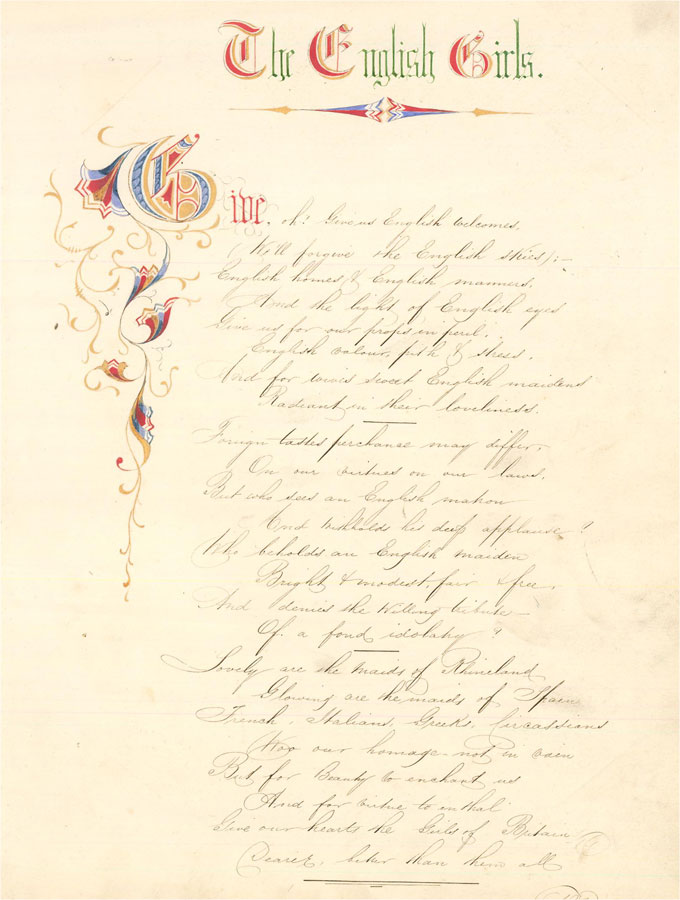 The English Girls.
Give, oh! Give us English welcomes,
(We'll forgive the English skies);—
English homes, & English manners,
And the light of English eyes
Give us for our props in peril,
English valour, pith & stress.
And for wives sweet English maidens
Radiant in their loveliness.
Foreign tastes perchance may differ,
On our virtues on our laws,
But who sees an English matron
And withholds his deep applause?
Who beholds an English maiden
Bright & modest, fair & free,
And denies the willing tribute
Of a fond idolatry?
Lovely are the maids of Rhineland
Glowing are the maids of Spain
French, Italians, Greeks, Circassians
Woo our homage not in vain
But for Beauty to enchant us
And for virtue to enthral
Give our hearts the Girls of Britain
Dearer, better than them all